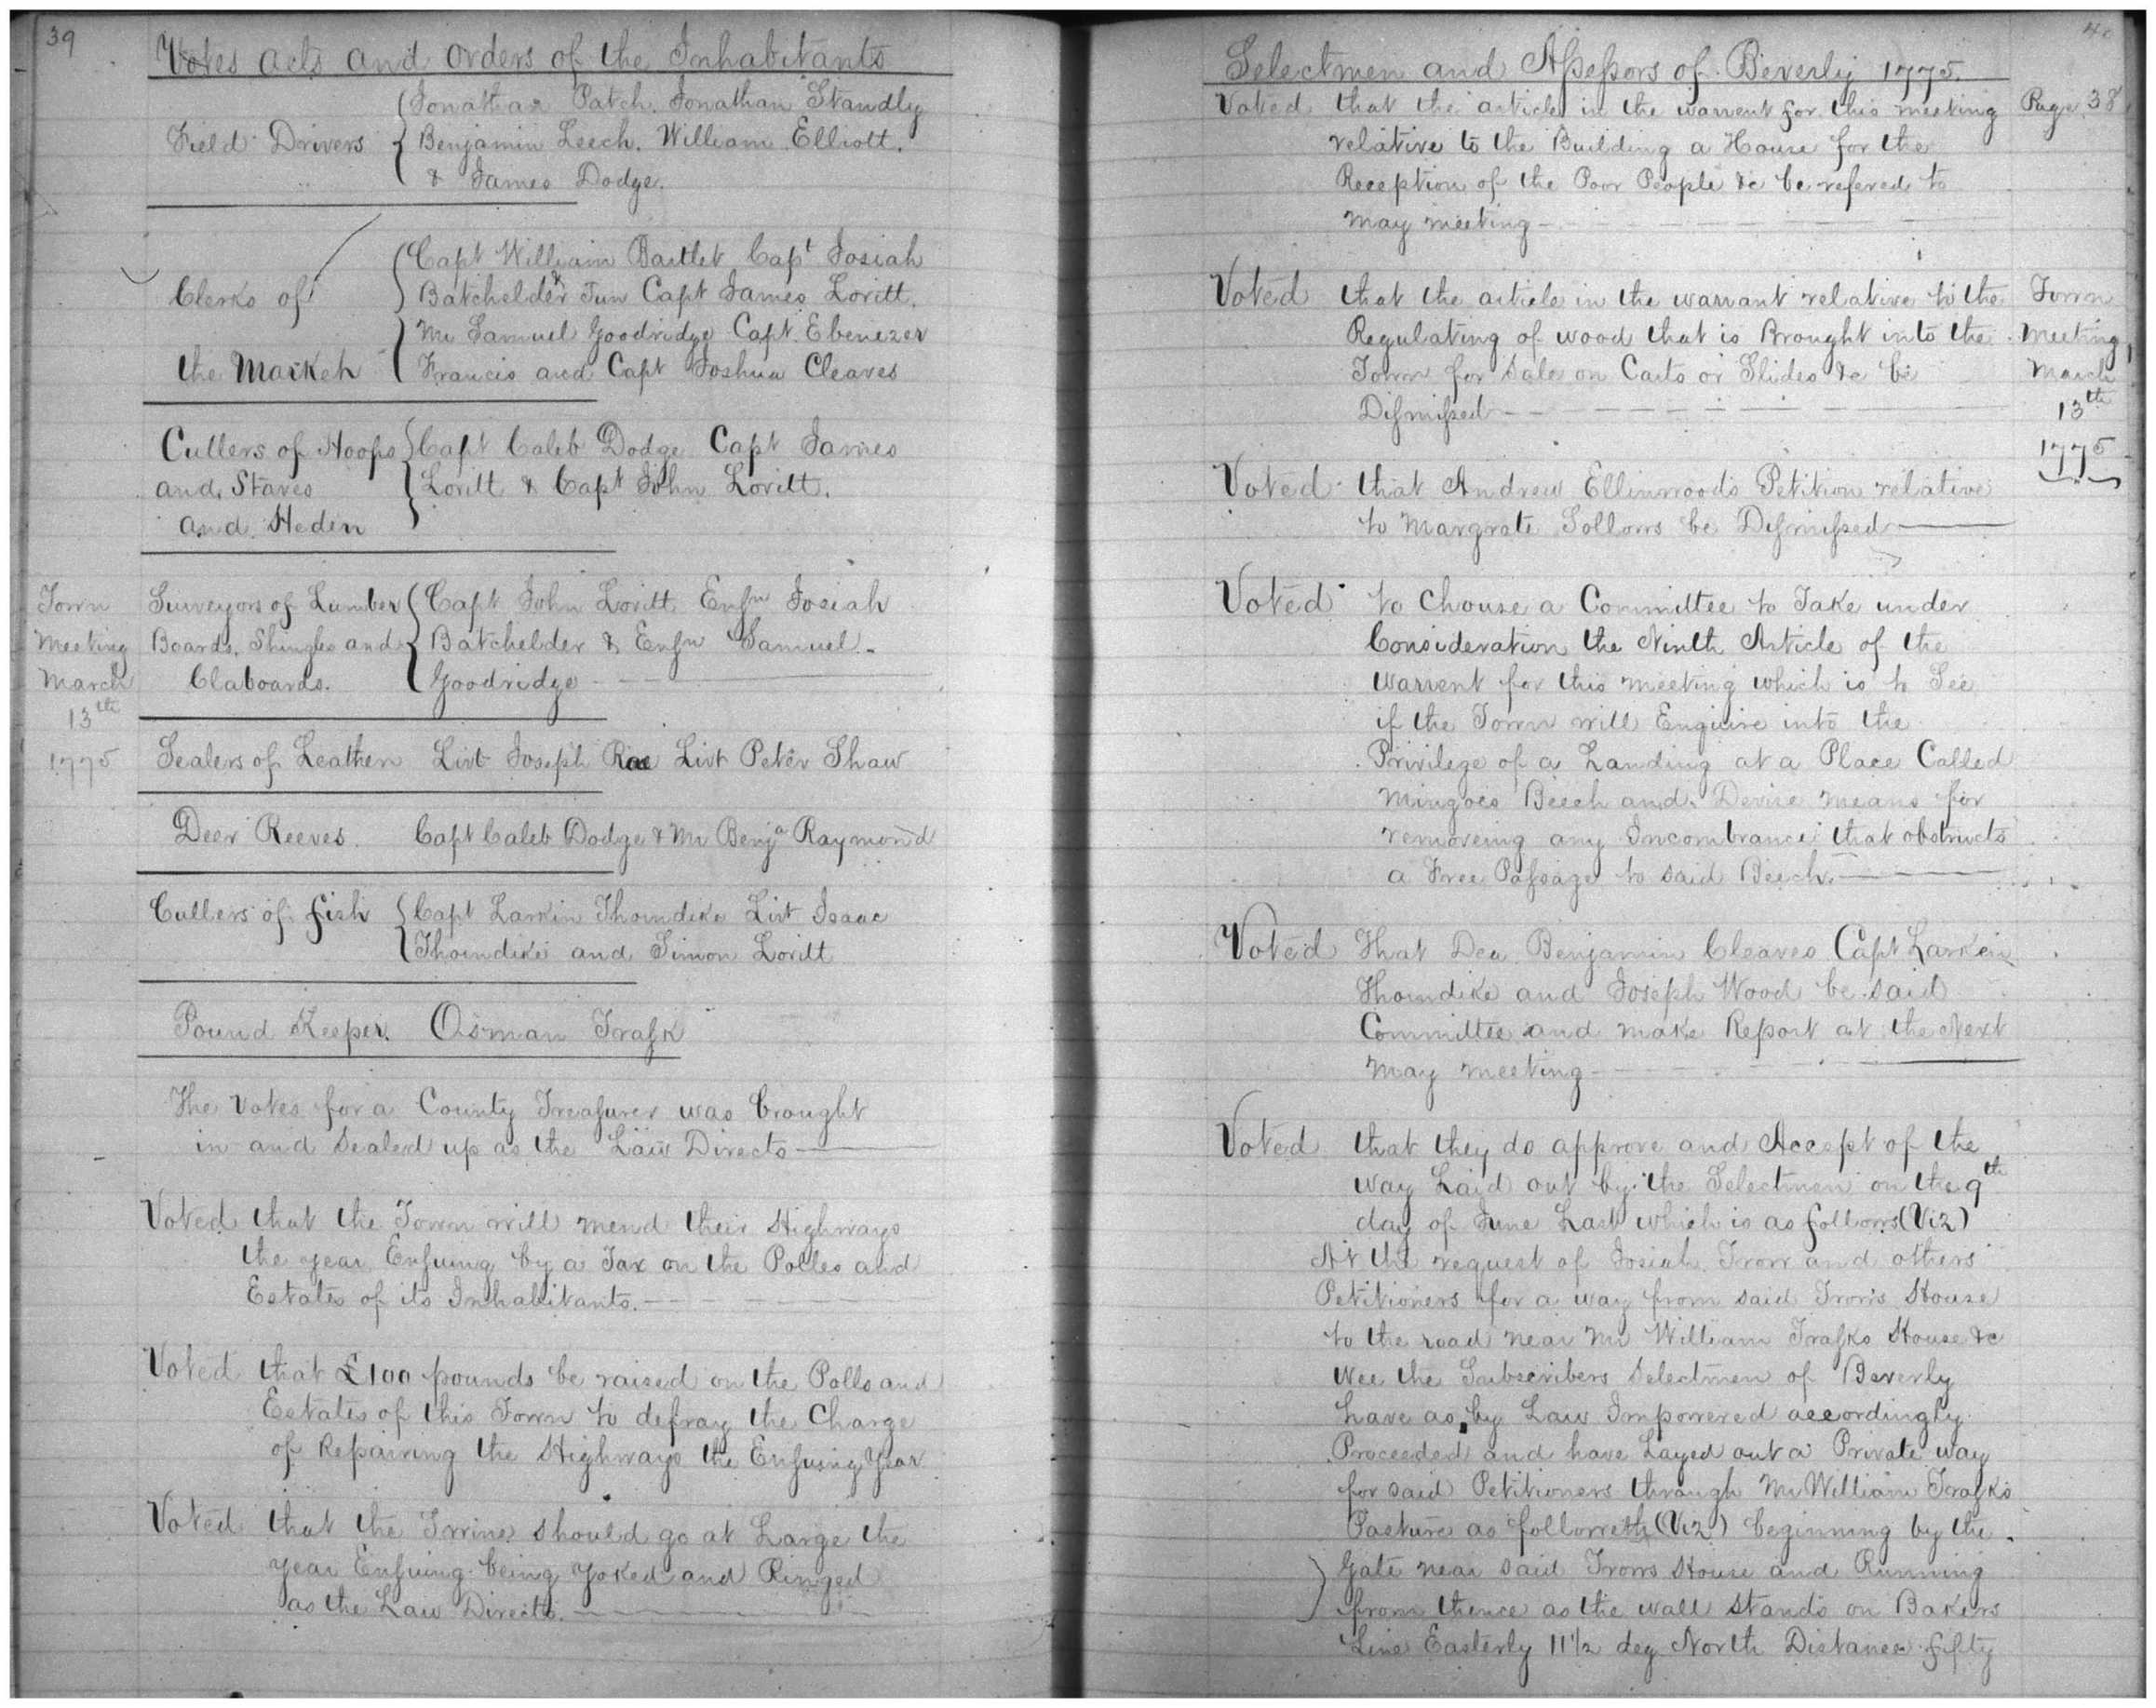 39
Votes acts and orders of the Inhabitants
Field Drivers
Jonathan Patch. Jonathan Standly
Benjamin Leech. William Elliott.
& James Dodge.
Clerks of
the Market
Capt William Bartlet Capt Josiah
Batchelder Jun Capt James Lovitt.
Mr Samuel Goodridge Capt. Ebenezer
Francis and Capt Joshua Cleaves
Cullers of Hoops
and Staves
and Heden
Capt Caleb Dodge Capt James
Lovitt & Capt John Lovitt.
Town
Meeting
March
13th
1775
Surveyors of Lumber
Boards, Shingles and
Claboards.
Capt John Lovitt Ensn Josiah
Batchelder & Ensn Samuel
Goodridge
Sealers of Leather Livt Joseph Rae Livt Peter Shaw
Deer Reeves. Capt Caleb Dodge & Mr Benja Raymond
Cullers of fish
Capt Larkin Thorndike Livt Isaac
Thorndike and Simon Lovitt
Pound Keeper. Osman Trask
The Votes for a County Treasurer was brought
in and Sealed up as the Law Directs
Voted that the Town will mend their Highways
the year Ensuing by a Tax on the Polles and
Estates of its Inhabitants.
Voted that £100 pounds be raised on the Polls and
Estates of this Town to defray the Charge
of Repairing the Highways the Ensuing Year
Voted that the Swine should go at Large the
year Ensuing being Yoked and Ringed
as the Law Directs.
40
Selectmen and Assessors of Beverly 1775.
Page 38
Voted that the article in the warrent for this meeting
relative to the Building a House for the
Reception of the Poor People &c be refered to
May meeting
Town
Meeting
March
13th
1775
Voted that the article in the warrant relative to the
Regulating of wood that is Brought into the
Town for Sale on Carts or Slides &c be
Dismissed
Voted that Andrew Ellinwoods Petition relative
to Margrate Sollows be Dismissed
Voted to Chouse a Committee to Take under
Consideration the Ninth Article of the
Warrent for this meeting which is to See
if the Town will Enquire into the
Privilege of a Landing at a Place Called
Mingoes Beech and Devise means for
removeing any Incombrance that obstructs
a Free Passage to said Beech.
Voted That Dea Benjamin Cleaves Capt Larkin
Thorndike and Joseph Wood be said
Committee and make Report at the Next
May meeting
Voted that they do approve and Accept of the
way Laid out by the Selectmen on the 9th
day of June Last which is as follows (Viz)
At the request of Josiah Trow and others
Petitioners for a way from said Trow's House
to the road near Mr William Trasks House &c
Wee the Subscribers Selectmen of Beverly
have as by Law Impowered accordingly
Proceeded and have Layed out a Private way
for said Petitioners through Mr William Trasks
Pasture as followeth (Viz) beginning by the
Gate near said Trows House and Running
from thence as the wall stands on Bakers
Line Easterly 11 1/2 deg North Distance fifty